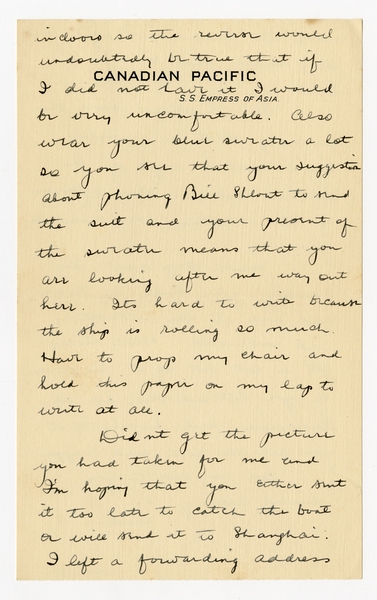 indoors so the reverse would
undoubtedly be true that if
CANADIAN PACIFIC
I did not have it I would
S.S. EMPRESS OF ASIA.
be very uncomfortable. Also
wear your blue sweater a lot
so you see that your suggestion
about phoning Bill to send
the suit and your present of
the sweater means that you
are looking after me way out
here. Its hard to write because
the ship is rolling so much.
Have to prop my chair and
hold this paper on my lap to
write at all.
Didnt get the picture
you had taken for me and
I'm hoping that you either sent
it too late to catch the boat
or will send it to Shanghai.
I left a forwarding address